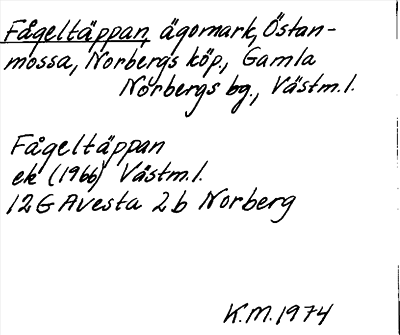 Fågeltäppan, ägomark, Östan-
mossa, Norbergs köp., Gamla
Norbergs bg., Västm.l.
Fågeltäppan
ek (1966) Västm.l.
12G Avesta 2b Norberg
K.M. 1974